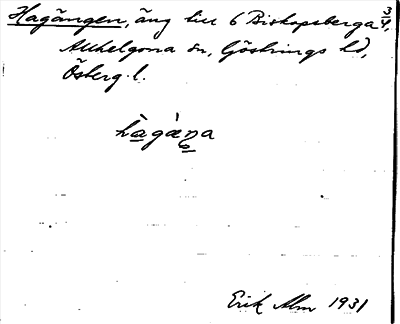 Hagängen, äng till 6 Biskopsberga 3/4,
Allhelgona sn, Göstrings hd,
Österg. l.
hàgáṉa
Erik Alm 1931